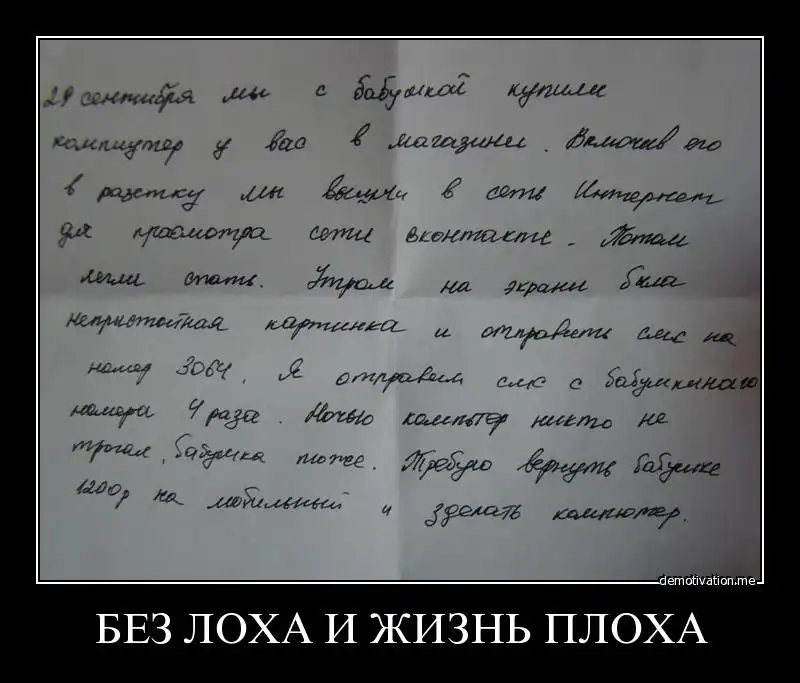 29 сентибря мы с бабушкой купили
компиутер у вас в магазини. Включив его
в разетку мы вышли в сеть Интернет
для прасмотра сети вконтакте. Потом
легли спать. Утром на экрани была
непристойная картинка и отправить смс на
номер 3064. Я отправил смс с бабушкинаго
номера 4 раза. Ночью компьтер никто не
трогал, бабушка тоже. Требую вернуть бабушке
1200р на мобильный и зделать компютер.
demotivation.me
БЕЗ ЛОХА И ЖИЗНЬ ПЛОХА